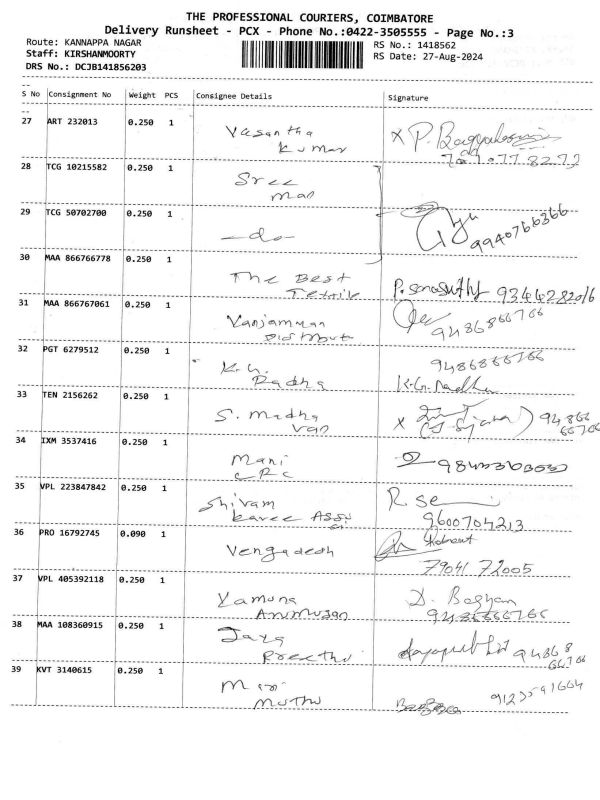 THE PROFESSIONAL COURIERS, COIMBATORE
Delivery Runsheet - PCX - Phone No.:0422-3505555 - Page No.:3
Route: KANNAPPA NAGAR
Staff: KIRSHANMOORTY
DRS No.: DCJB141856203
RS No.: 1418562
RS Date: 27-Aug-2024
S No Consignment No Weight PCS Consignee Details Signature
27 ART 232013 0.250 1 Vasantha
Kumar
28 TCG 10215582 0.250 1 Sree
mal
29 TCG 50702700 0.250 1 -do- 9940766366
30 MAA 866766778 0.250 1 The Best
P. 9344282016
31 MAA 866767061 0.250 1 9486866766
32 PGT 6279512 0.250 1 K.G. 9486866766
Radha K.G. Radha
33 TEN 2156262 0.250 1 S. Madha
van x 94866
66766
34 IXM 3537416 0.250 1 Mani
CRC
35 VPL 223847842 0.250 1 Shivam R. Se
9600704213
36 PRO 16792745 0.090 1 Vengadesh
79041 72005
37 VPL 405392118 0.250 1 Yamuna
9486866766
38 MAA 108360915 0.250 1 Jaya
Preethi 94868
66766
39 KVT 3140615 0.250 1 Mari
Muthu 9123591664